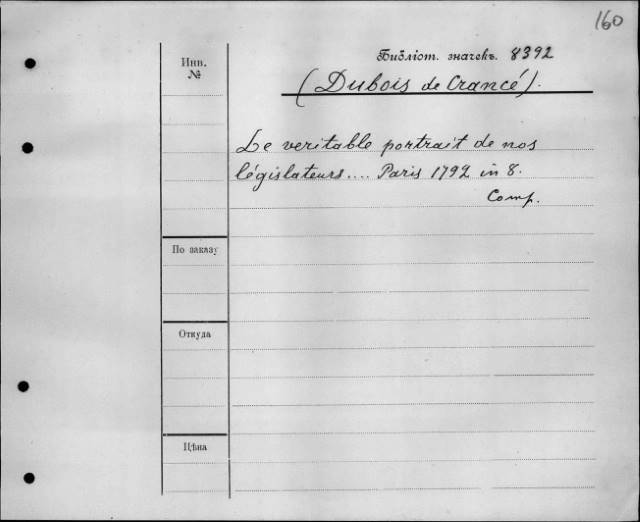 160
Библіот. значекъ. 8392
Инв.
№
(Dubois de Crancé).
Le veritable portrait de nos
législateurs.... Paris 1792 in 8.
Comp.
По заказу
Откуда
Цѣна